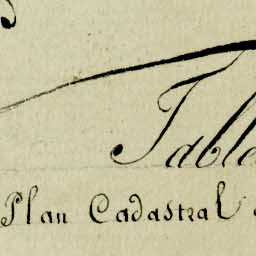 Table
Plan Cadastral